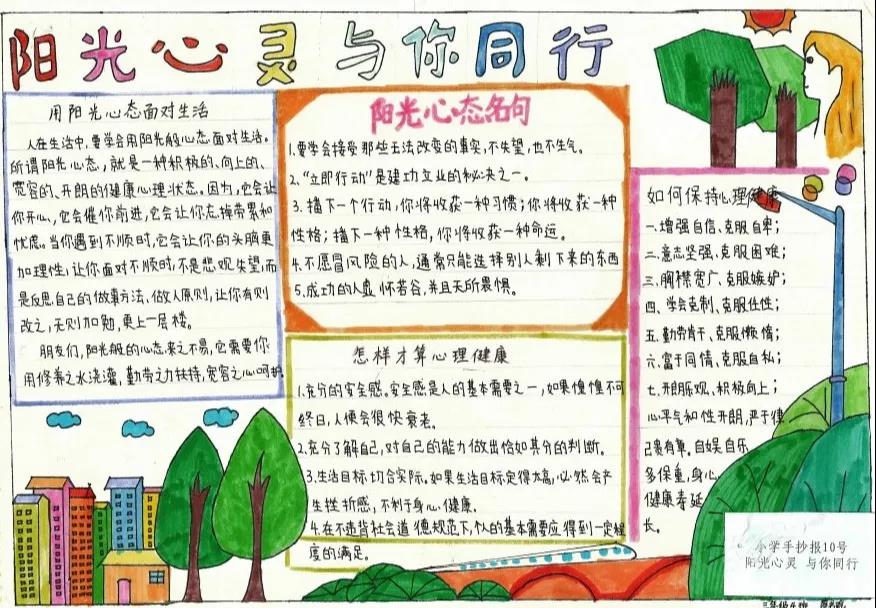 阳光心灵与你同行
用阳光心态面对生活
人在生活中,要学会用阳光般心态面对生活。
所谓阳光心态,就是一种积极的、向上的、
宽容的、开朗的健康心理状态。因为,它会让
你开心,它会催你前进,它会让你忘掉劳累和
忧虑。当你遇到不顺时,它会让你的头脑更
加理性,让你面对不顺时,不是悲观失望,而
是反思自己的做事方法、做人原则,让你有则
改之,无则加勉,更上一层楼。
朋友们,阳光般的心态来之不易,它需要你
用修养之水浇灌,勤劳之力扶持,宽容之心呵护
阳光心态名句
1.要学会接受那些无法改变的事实,不失望,也不生气。
2.“立即行动”是建功立业的秘决之一。
3.播下一个行动,你将收获一种习惯;你将收获一种
性格;播下一种性格,你将收获一种命运。
4.不愿冒风险的人,通常只能选择别人剩下来的东西
5.成功的人虚怀若谷,并且无所畏惧。
怎样才算心理健康
1.充分的安全感。安全感是人的基本需要之一,如果惶惶不可
终日,人便会很快衰老。
2.充分了解自己,对自己的能力做出恰如其分的判断。
3.生活目标切合实际。如果生活目标定得太高,必然会产
生挫折感,不利于身心健康。
4.在不违背社会道德规范下,个人的基本需要应得到一定程
度的满足。
如何保持心理健康
一.增强自信、克服自卑;
二.意志坚强、克服困难;
三.胸襟宽广、克服嫉妒;
四、学会克制、克服任性;
五.勤劳肯干、克服懒惰;
六.富于同情、克服自私;
七.开朗乐观、积极向上;
心平气和性开朗,严于律
己要有尊。自娱自乐
多保重,身心
健康寿延
长。
小学手抄报10号
阳光心灵 与你同行